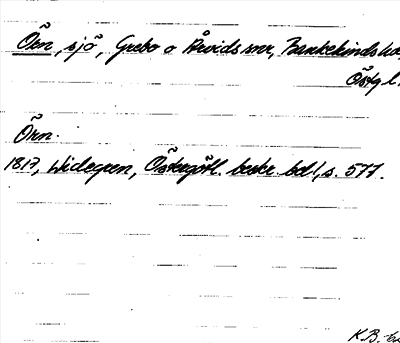 Örn, sjö, Grebo o Åtvids snr, Bankekinds hd,
Östg l.
Örn.
1817, Widegren, Östergötl. beskr. bd 1, s. 577.
K.B.